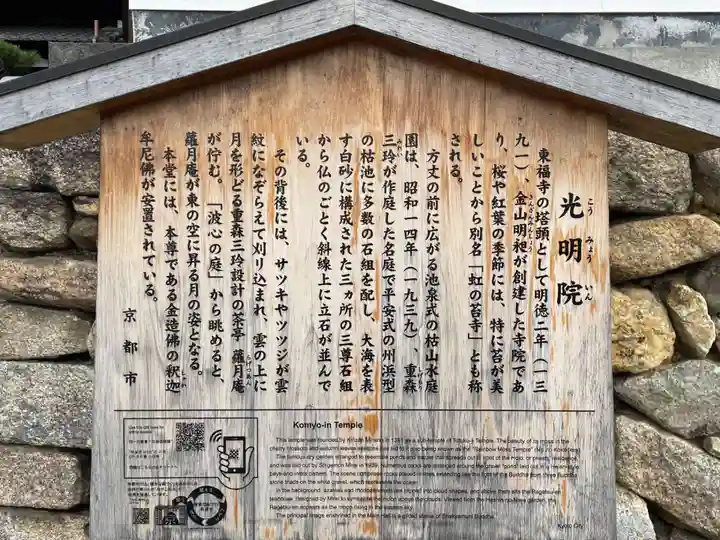 光明院
こう みょう いん
東福寺の塔頭として明徳二年（一三
九一）、金山明昶が創建した寺院であ
り、桜や紅葉の季節には、特に苔が美
しいことから別名「虹の苔寺」とも称
される。
方丈の前に広がる池泉式の枯山水庭
園は、昭和一四年（一九三九）、重森
三玲が作庭した名庭で平安式の州浜型
の枯池に多数の石組を配し、大海を表
す白砂に構成された三ヵ所の三尊石組
から仏のごとく斜線上に立石が並んで
いる。
その背後には、サツキやツツジが雲
紋になぞらえて刈り込まれ、雲の上に
月を形どる重森三玲設計の茶亭 蘿月庵
が佇む。「波心の庭」から眺めると、
蘿月庵が東の空に昇る月の姿となる。
本堂には、本尊である金造佛の釈迦
牟尼佛が安置されている。
京都市
Komyo-in Temple
This temple was founded by Kinzan Meisho in 1391 as a sub-temple of Tofuku-ji Temple. The beauty of its moss in the
The principal image enshrined in the Main Hall is a gilded statue of Shakyamuni Buddha.
Kyoto City